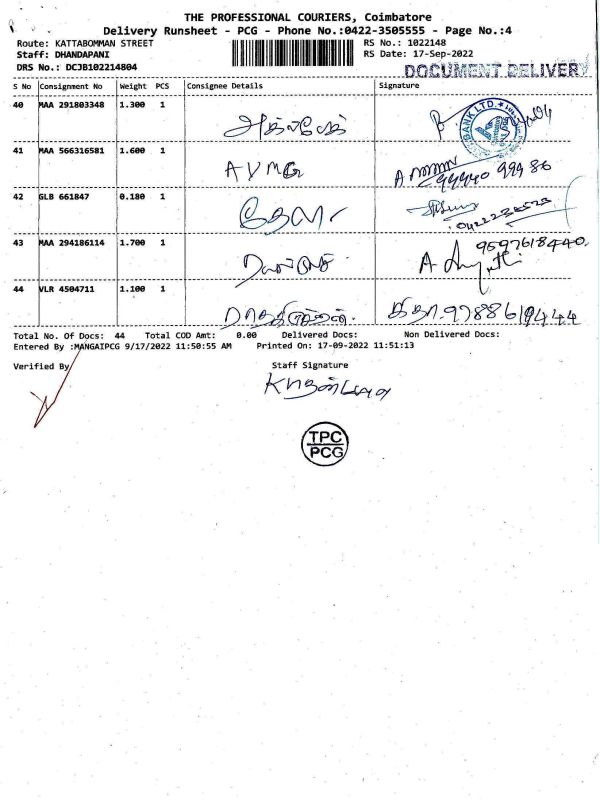 THE PROFESSIONAL COURIERS, Coimbatore
Delivery Runsheet - PCG - Phone No.:0422-3505555 - Page No.:4
Route: KATTABOMMAN STREET
RS No.: 1022148
Staff: DHANDAPANI
RS Date: 17-Sep-2022
DRS No.: DCJB102214804
DOCUMENT DELIVERY
S No Consignment No Weight PCS Consignee Details Signature
40 MAA 291803348 1.300 1
BANK LTD.
41 MAA 566316581 1.600 1 AVMG 99940 99986
42 GLB 661847 0.180 1
43 MAA 294186114 1.700 1 9597618440
44 VLR 4504711 1.100 1 9788619444
Total No. Of Docs: 44 Total COD Amt: 0.00 Delivered Docs: Non Delivered Docs:
Entered By :MANGAIPCG 9/17/2022 11:50:55 AM Printed On: 17-09-2022 11:51:13
Verified By Staff Signature
TPC
PCG